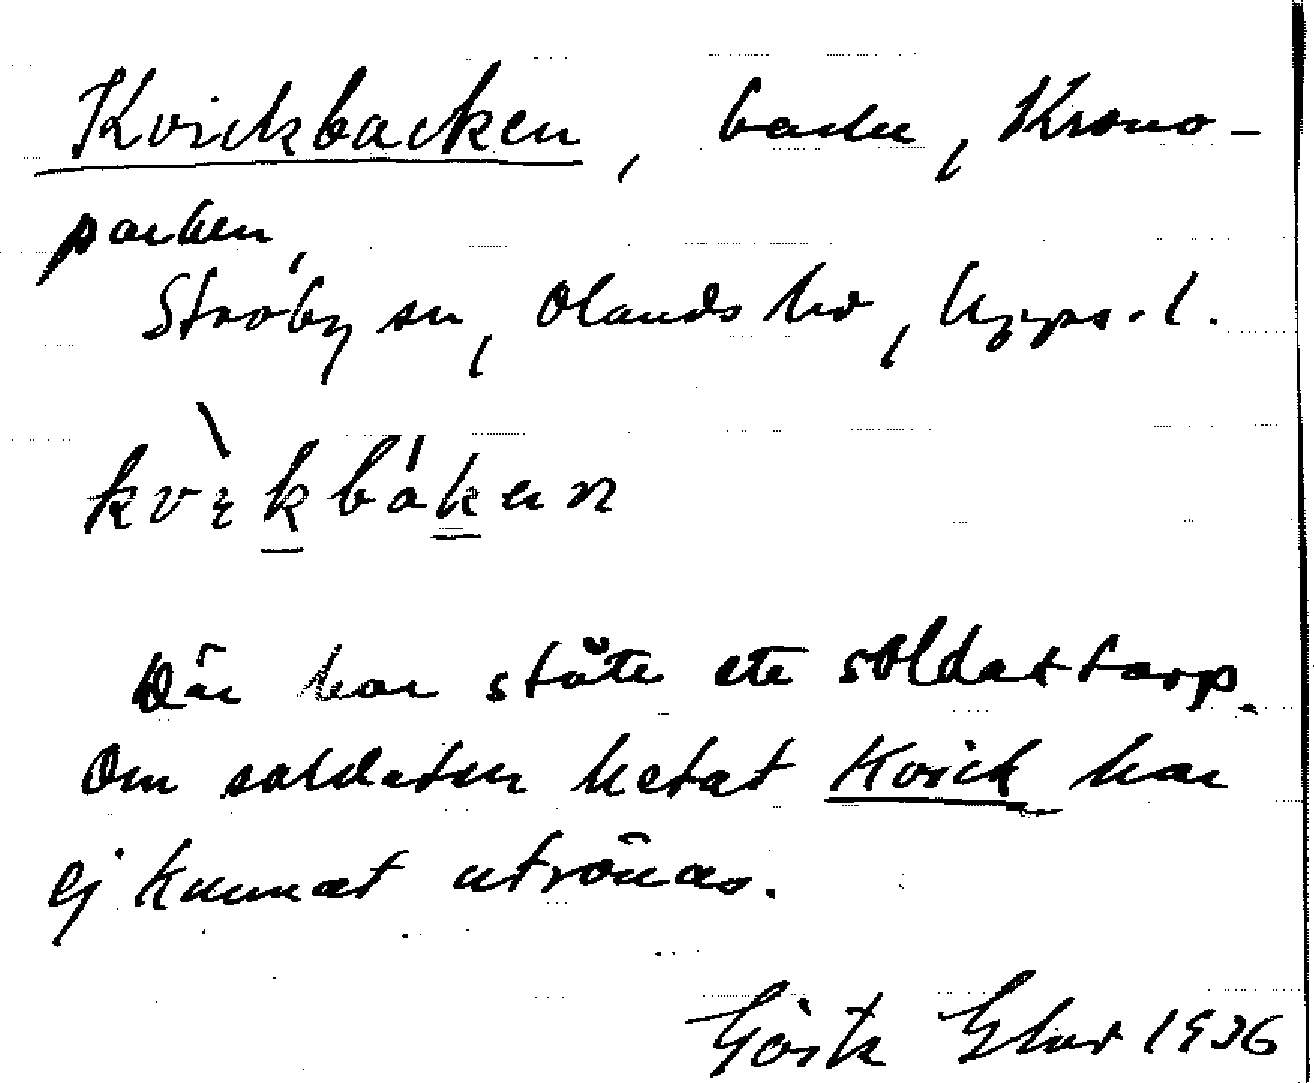 Kvickbacken, backe, Krono-
parken,
Stavby sn, Olands hd, Upps. l.
kvìkbákεn
Där har stått ett soldattorp.
Om soldaten hetat Kvick har
ej kunnat utrönas.
Gösta 1936